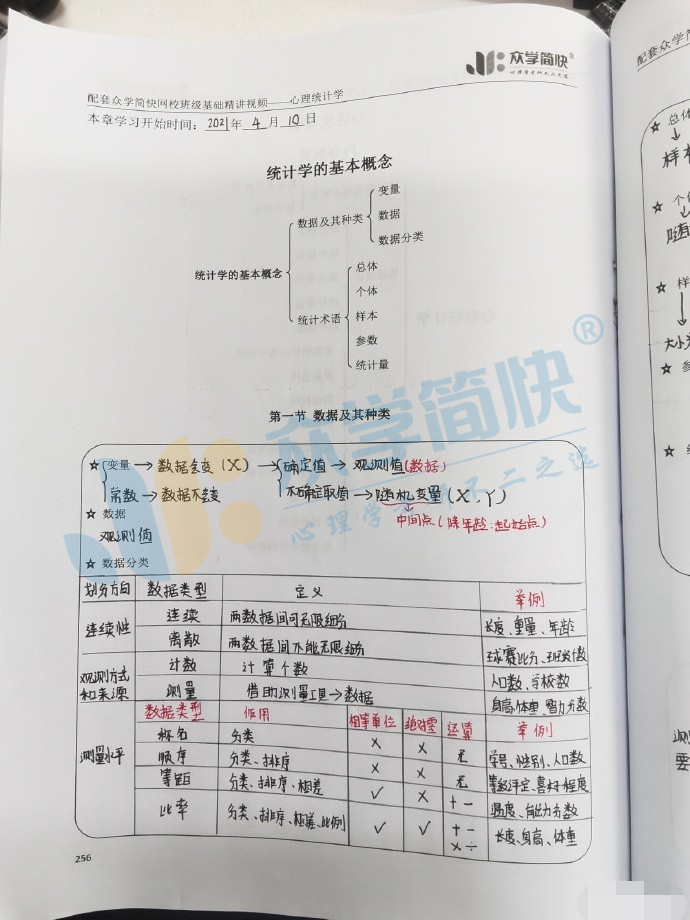 众学简快®
心理学考研不二之选
配套众学简快网校班级基础精讲视频——心理统计学
本章学习开始时间：2021年 4 月 10 日
统计学的基本概念
统计学的基本概念
数据及其种类
变量
数据
数据分类
统计术语
总体
个体
样本
参数
统计量
第一节 数据及其种类
☆ 变量 → 数据会变（X） → 确定值 → 观测值(数据)
常数 → 数据不变 不确定取值 → 随机变量（X、Y）
☆ 数据
观测值
中间点(除年龄:起始点)
☆ 数据分类
划分方向 数据类型 定义 举例
连续性 连续 两数据间可无限细分 长度、重量、年龄
离散 两数据间不能无限细分 球赛比分、班级个数
观测方式和来源 计数 计算个数 人口数、学校数
测量 借助测量工具→数据 身高、体重、智力分数
测量水平 数据类型 作用 相等单位 绝对零 运算 举例
称名 分类 × × 无 学号、性别、人口数
顺序 分类、排序 × × 无 等级评定、喜好程度
等距 分类、排序、相差 ✓ × + − 温度、能力分数
比率 分类、排序、相差、比例 ✓ ✓ + − × ÷ 长度、身高、体重
256
众学简快®
心理学考研不二之选
配套众学简
☆ 总体
样本
☆ 个体
随
☆ 样
大小
☆ 参